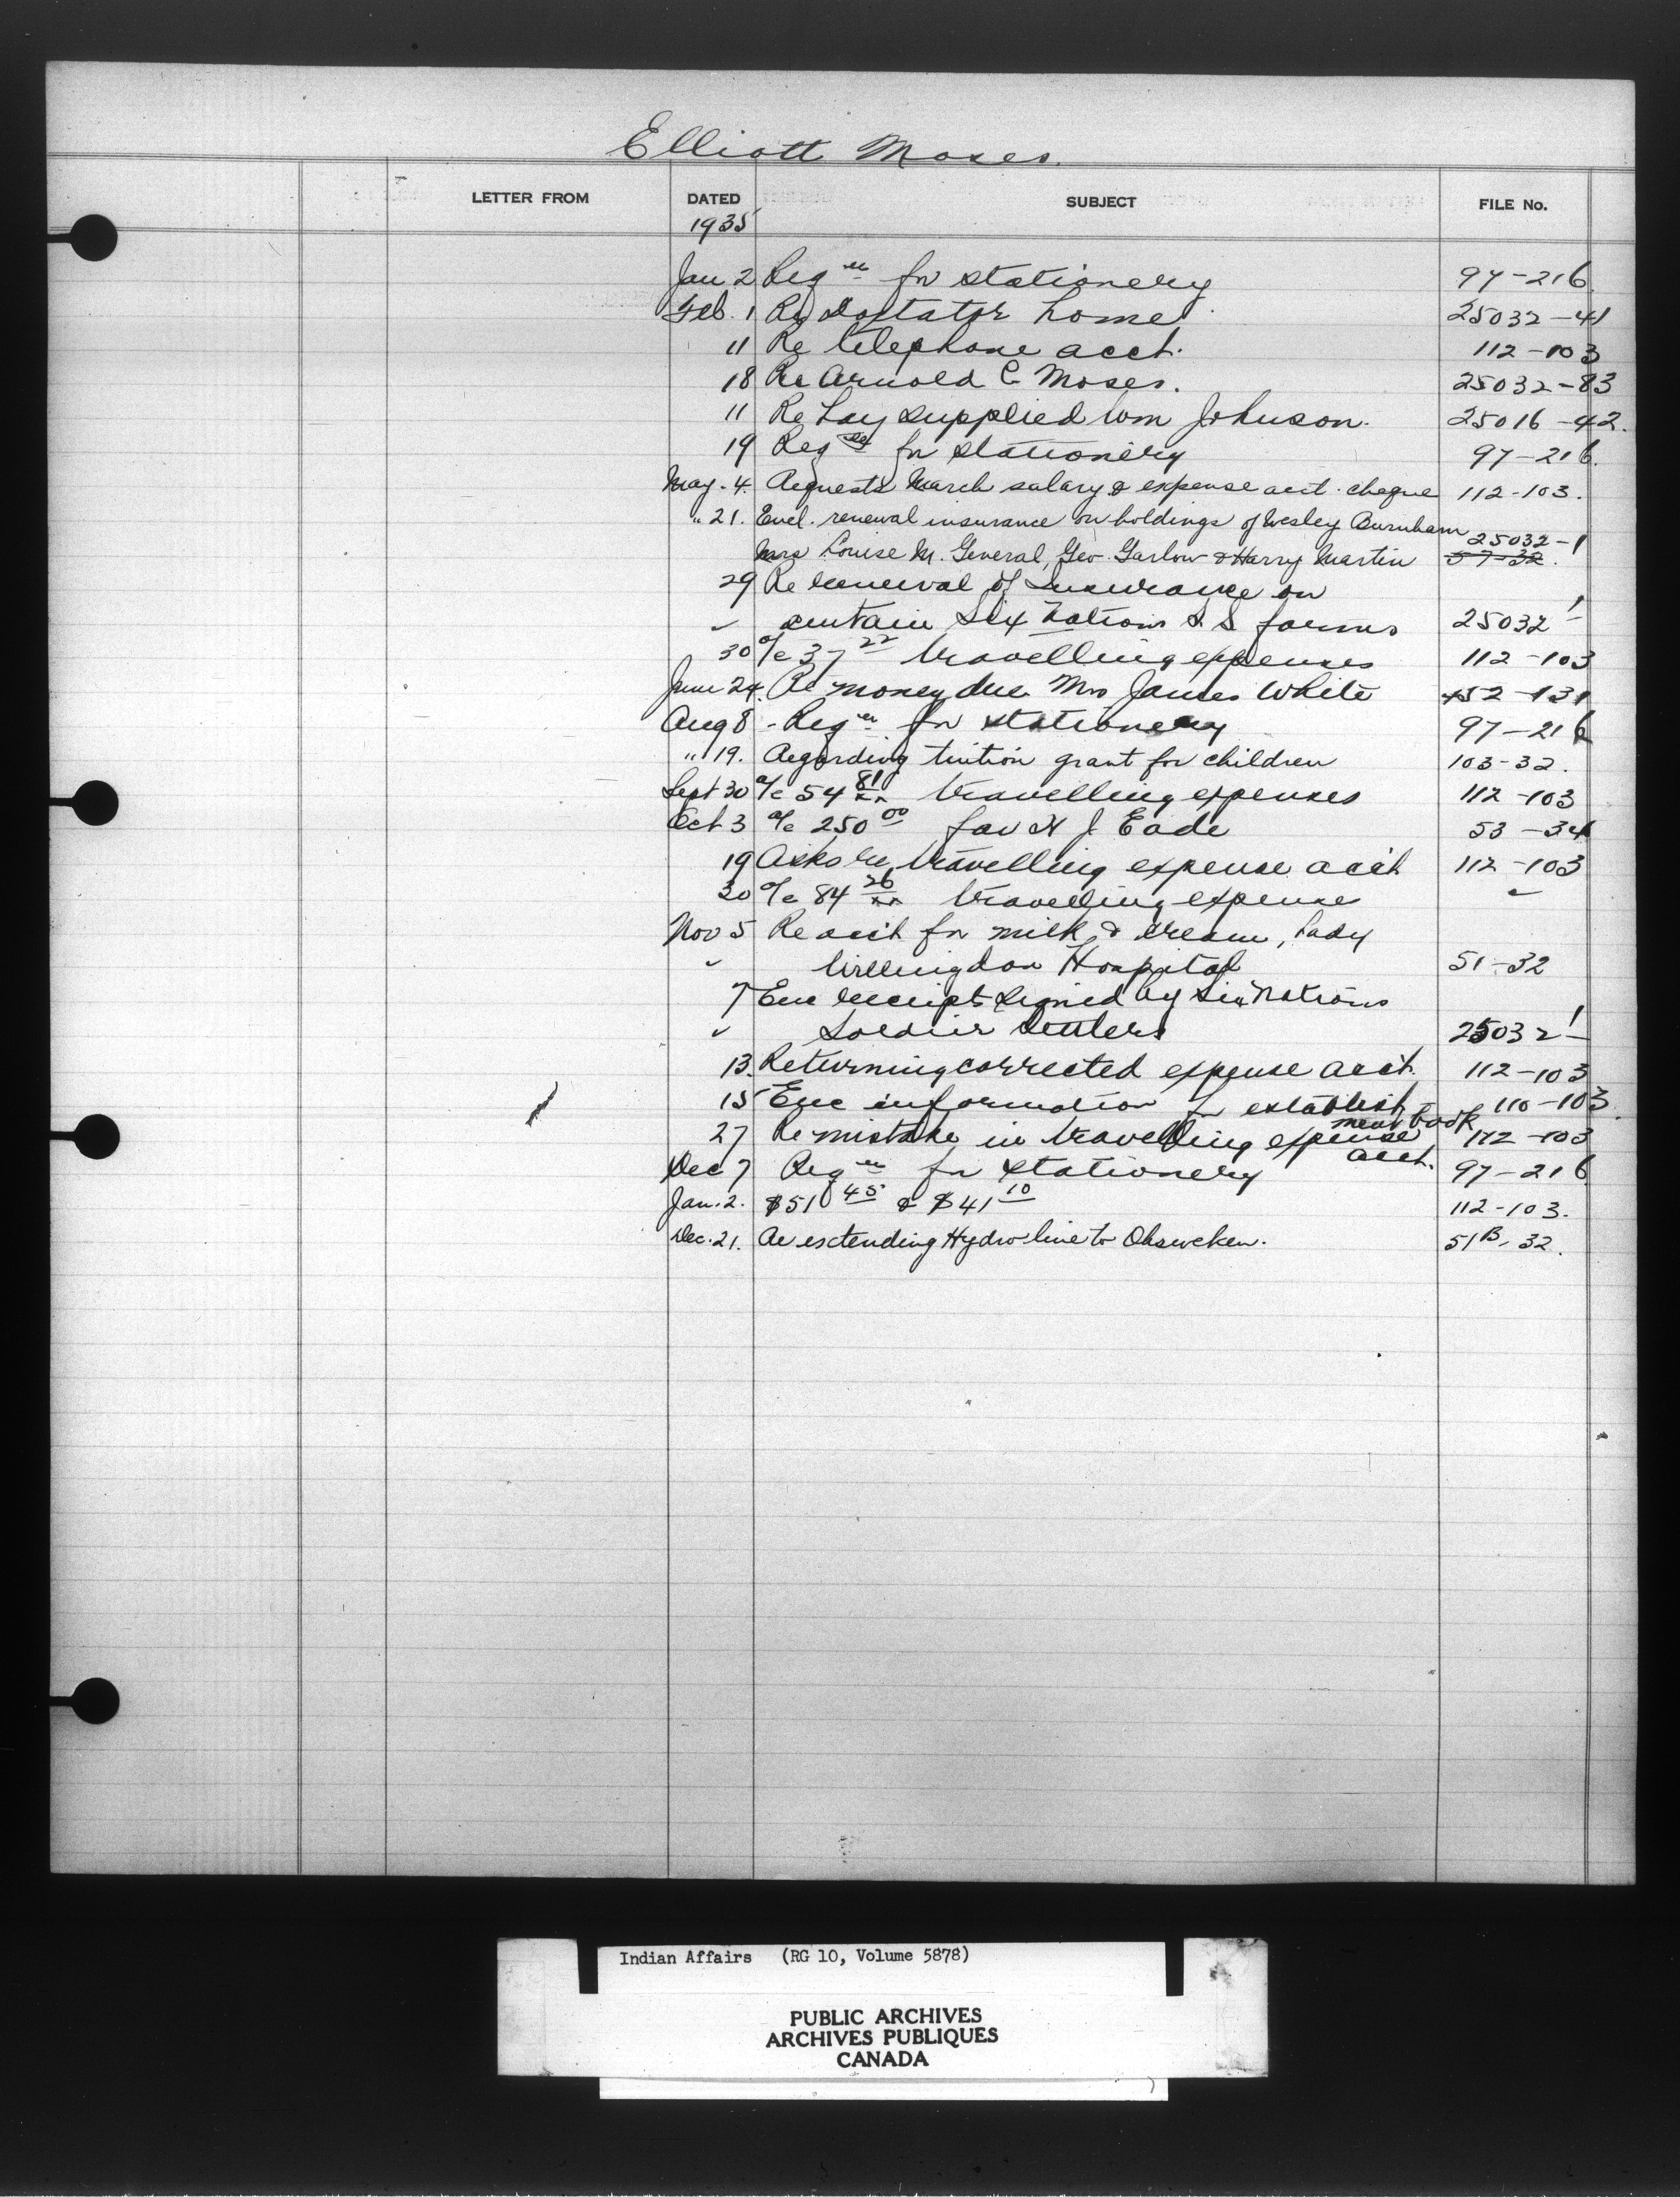 Elliott Moses.
LETTER FROM DATED SUBJECT FILE No.
1935
Jan 2 Reqn for stationery 97-216
Feb. 1 Re Doxtator home 25032-41
11 Re telephone acct. 112-103
18 Re Arnold C Moses. 25032-83
11 Re Hay supplied Wm Johnson. 25016-42.
19 Reqn for stationery 97-216.
May. 4. Requests March salary & expense acct. cheque 112-103.
" 21. Encl. renewal insurance on holdings of Wesley Burnham 25032-1
Mrs Louise M. General, Geo Garlow & Harry Martin 57-32.
29 Re renewal of Insurance on
" certain Six Nations S.S farms 25032-1
30 a/c 37 22 travelling expenses 112-103
June 24. Re money due Mrs James White 452-131
Aug 8 - Reqn for stationery 97-216
" 19. Regarding tuition grant for children 103-32.
Sept 30 a/c 54 81/xx travelling expenses 112-103
Oct 3 a/c 250 00 fav H J Eade 53-34
19 Asks re travelling expense acct 112-103
30 a/c 84 26/xx travelling expense "
Nov 5 Re acct for milk & cream, Lady
" Willingdon Hospital 51-32
7 Enc receipts signed by Six Nations
" Soldier Settlers 25032-1
13. Returning corrected expense acct. 112-103
15 Enc information for establish 110-103.
ment book
27 Re mistake in travelling expense 112-103
acct.
Dec 7 Reqn for stationery 97-216
Jan. 2. $51 45 & $41 10 112-103.
Dec. 21. Re extending Hydro line to Ohsweken. 51B-32.
Indian Affairs (RG 10, Volume 5878)
PUBLIC ARCHIVES
ARCHIVES PUBLIQUES
CANADA